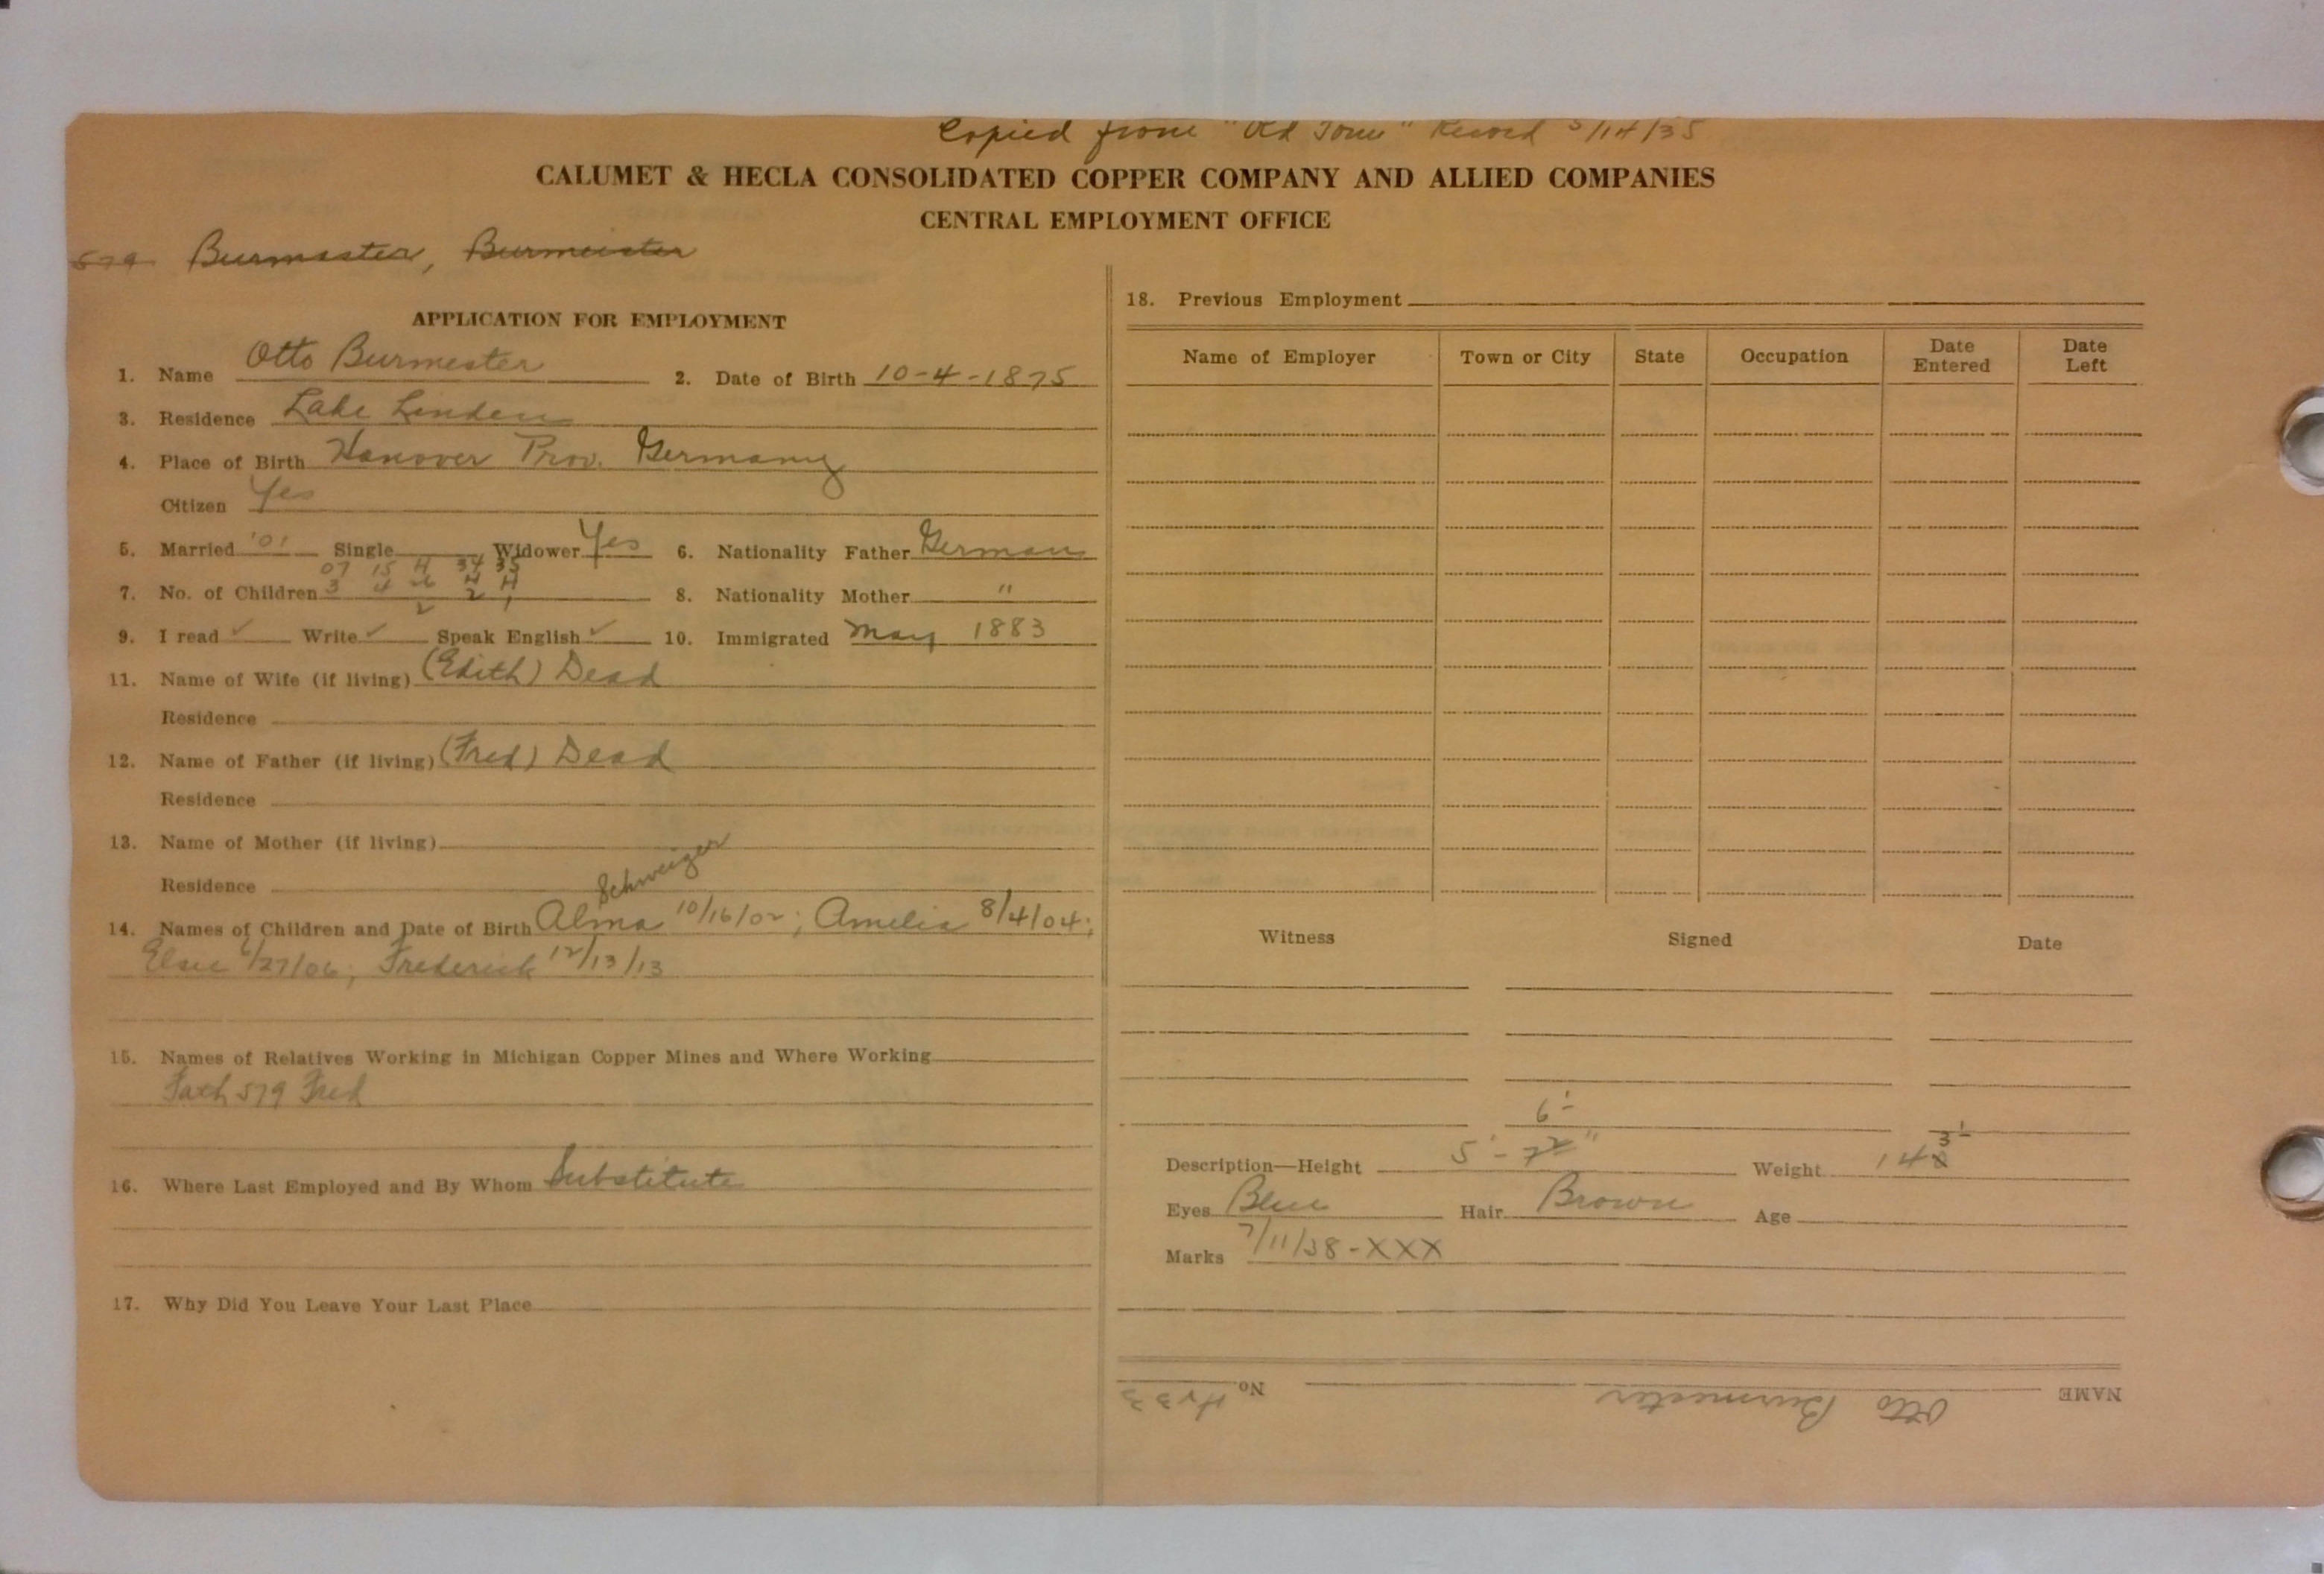 Copied from "Old Form" Record 5/14/35
CALUMET & HECLA CONSOLIDATED COPPER COMPANY AND ALLIED COMPANIES
CENTRAL EMPLOYMENT OFFICE
579 Burmaster, Burmeister
APPLICATION FOR EMPLOYMENT
1. Name Otto Burmester 2. Date of Birth 10-4-1875
3. Residence Lake Linden
4. Place of Birth Hanover Prov. Germany
Citizen Yes
5. Married '01 Single Widower Yes 6. Nationality Father German
07 15 H 34 35
7. No. of Children 3 4 H H 8. Nationality Mother "
2 2 1
9. I read ✓ Write ✓ Speak English ✓ 10. Immigrated May 1883
11. Name of Wife (if living) (Edith) Dead
Residence
12. Name of Father (if living) (Fred) Dead
Residence
13. Name of Mother (if living)
Residence
Schweizer
14. Names of Children and Date of Birth Alma 10/16/02; Amelia 8/4/04;
Elsie 6/27/06; Frederick 12/13/13
15. Names of Relatives Working in Michigan Copper Mines and Where Working
Fath 579 Fred
16. Where Last Employed and By Whom Substitute
17. Why Did You Leave Your Last Place
18. Previous Employment
Name of Employer Town or City State Occupation Date Entered Date Left
Witness Signed Date
6 -
Description—Height 5' - 7" Weight 148
3
Eyes Blue Hair Brown Age
Marks 7/11/38-XXX
NAME Otto Burmester No.